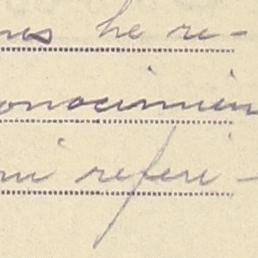 nes he re-
onocimien
mi referi-